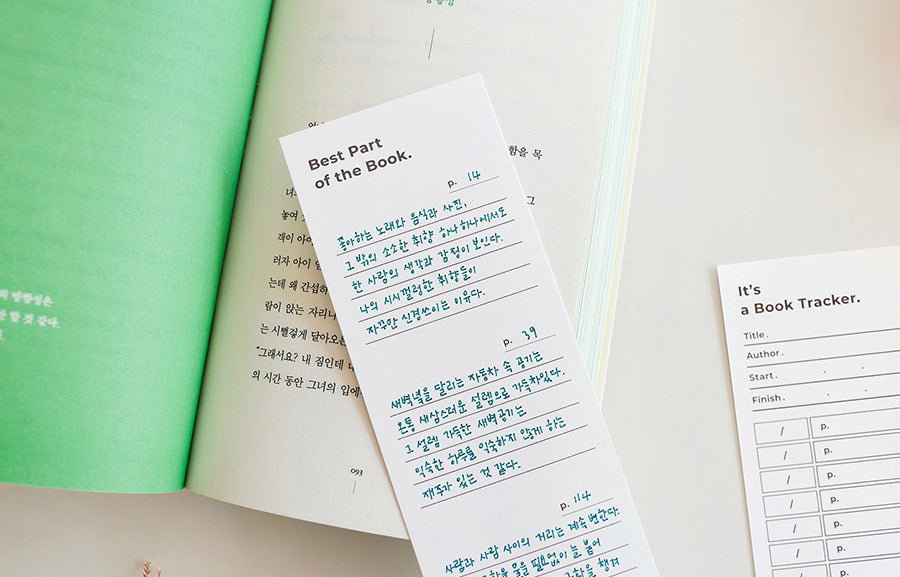 093
객이 아
러자 아이
는데 왜 간섭하
람이 앉는 자리
는 시뻘겋게 달아오
"그래서요? 내 짐인데
의 시간 동안 그녀의 입에
함을 목
그
Best Part
of the Book.
p. 14
좋아하는 노래와 음식과 사진,
그 밖의 소소한 취향 하나하나에서도
한 사람의 생각과 감정이 보인다.
나의 시시껄렁한 취향들이
자꾸만 신경쓰이는 이유다.
p. 39
새벽녘을 달리는 자동차 속 공기는
온통 새삼스러운 설렘으로 가득차있다.
그 설렘 가득한 새벽공기는
익숙한 하루를 익숙하지 않게 하는
재주가 있는 것 같다.
p. 114
사람과 사람 사이의 거리는 계속 변한다.
물을 필요없이 늘 붙어
It's
a Book Tracker.
Title.
Author.
Start. . .
Finish. . .
/ p.
/ p.
/ p.
/ p.
/ p.
/ p.